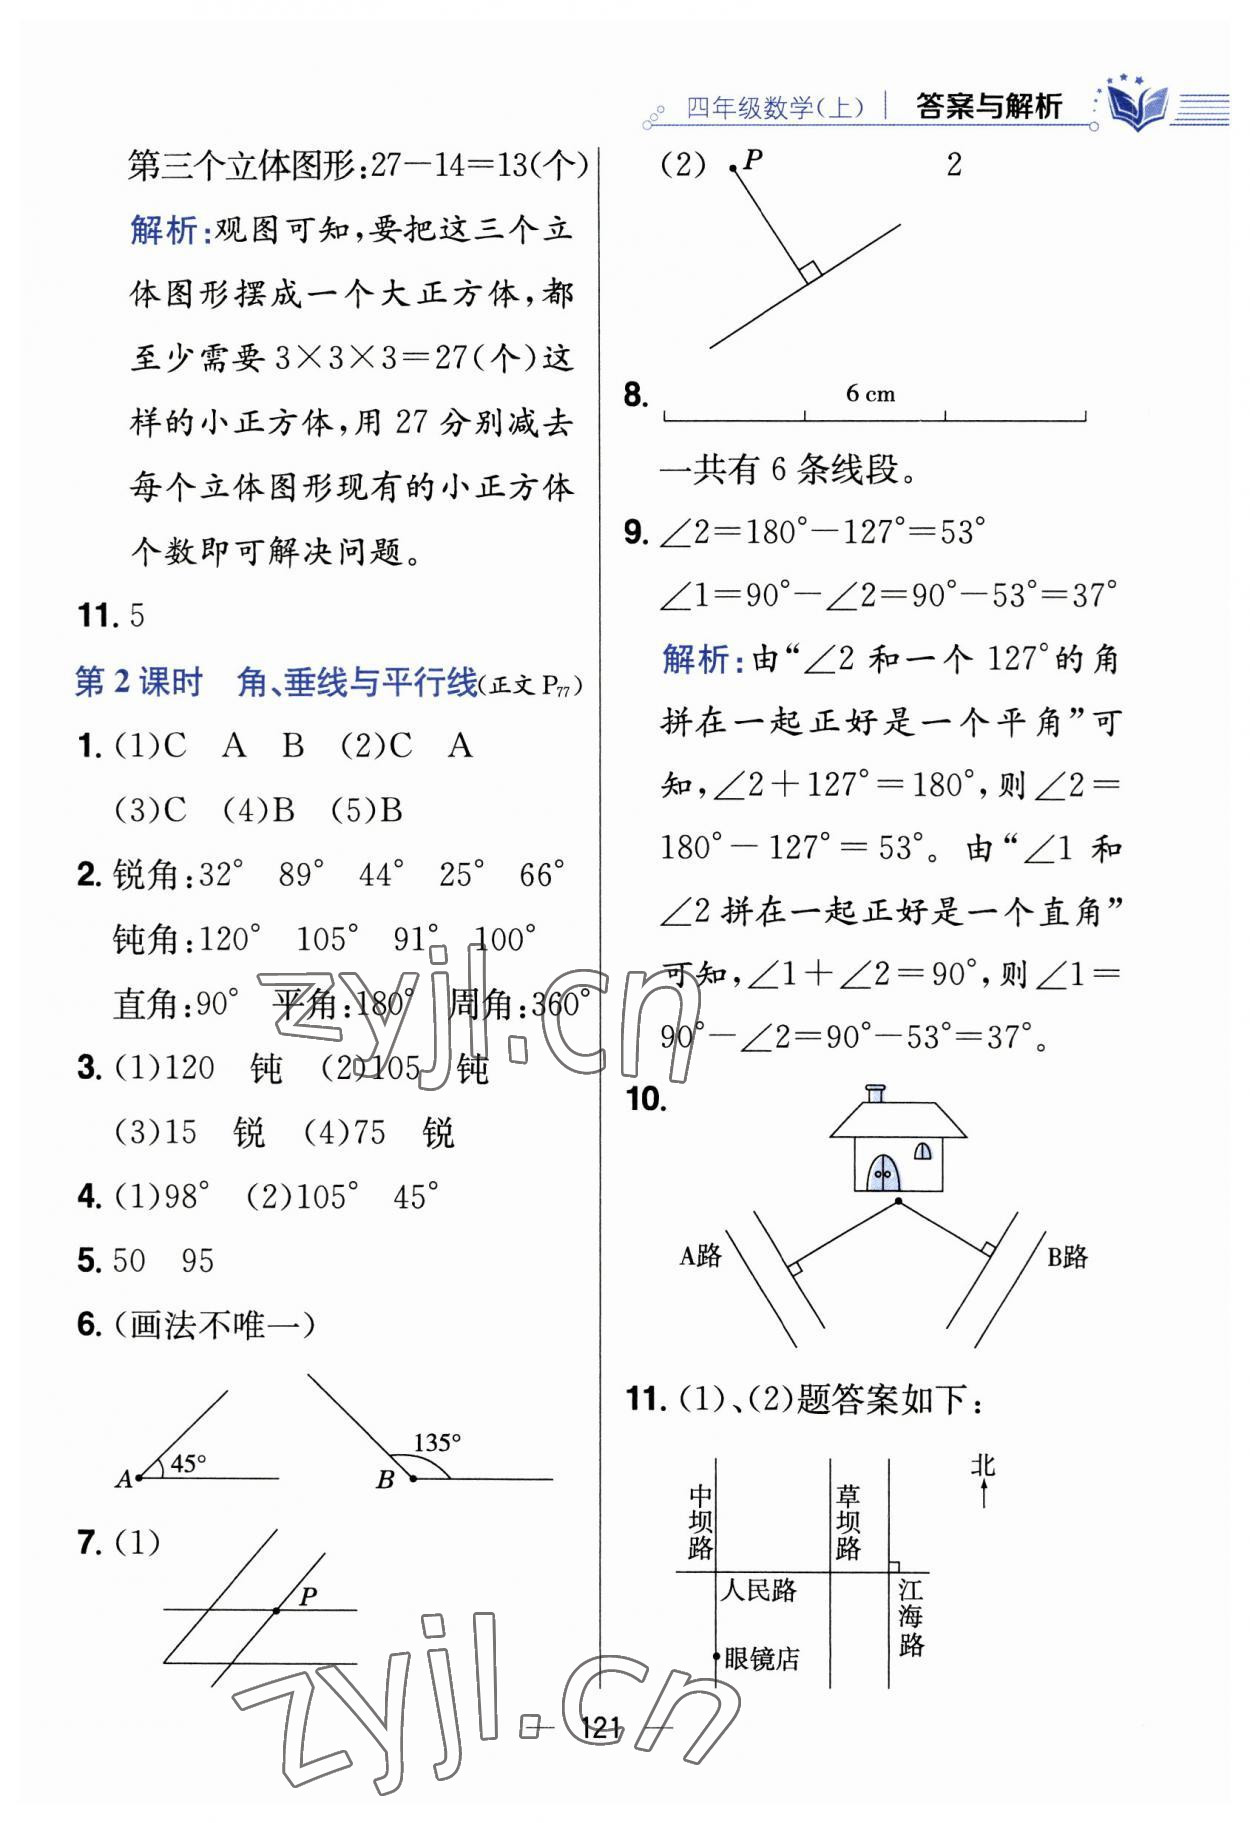 四年级数学(上) 答案与解析
第三个立体图形:27-14=13(个)
解析:观图可知,要把这三个立
体图形摆成一个大正方体,都
至少需要3×3×3=27(个)这
样的小正方体,用27分别减去
每个立体图形现有的小正方体
个数即可解决问题。
11. 5
第2课时 角、垂线与平行线(正文P77)
1. (1)C A B (2)C A
(3)C (4)B (5)B
2. 锐角:32° 89° 44° 25° 66°
钝角:120° 105° 91° 100°
直角:90° 平角:180° 周角:360°
3. (1)120 钝 (2)105 钝
(3)15 锐 (4)75 锐
4. (1)98° (2)105° 45°
5. 50 95
6. (画法不唯一)
A 45°
B 135°
7. (1)
P
(2) P 2
8. 6 cm
一共有6条线段。
9. ∠2=180°-127°=53°
∠1=90°-∠2=90°-53°=37°
解析:由“∠2和一个127°的角
拼在一起正好是一个平角”可
知,∠2+127°=180°,则∠2=
180°-127°=53°。由“∠1和
∠2拼在一起正好是一个直角”
可知,∠1+∠2=90°,则∠1=
90°-∠2=90°-53°=37°。
10.
A路
B路
11. (1)、(2)题答案如下:
北
中坝路
草坝路
人民路
江海路
眼镜店
121
zyjl.cn
zyjl.cn